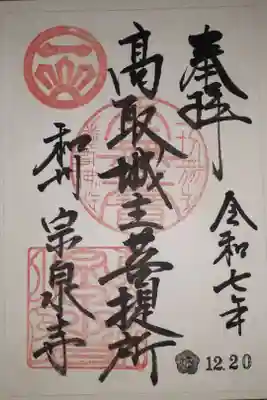 奉拝
令和七年
12.20
髙取城主菩提所
和州 宗泉寺